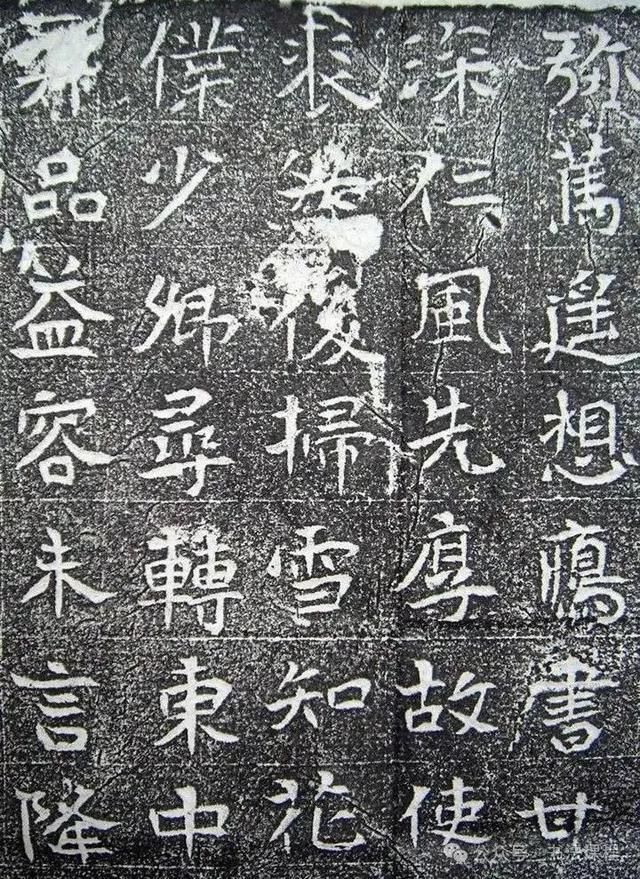 弥萬遥想鴈書廿
深仁風先厚故使
求後掃雪知花
僕少卿尋轉東中
品益容未言降
公众号